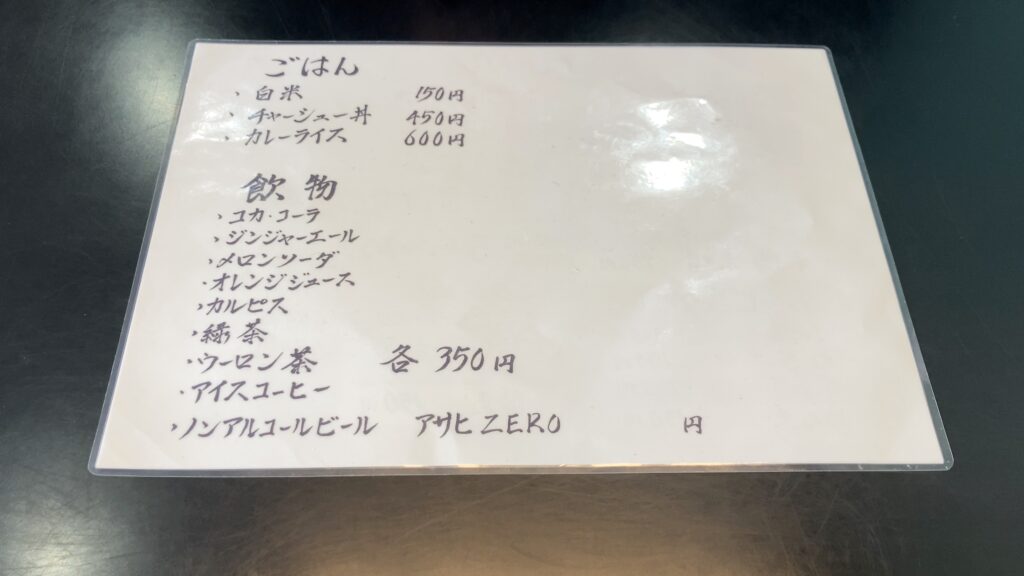 ごはん
・白米 150円
・チャーシュー丼 450円
・カレーライス 600円
飲物
・コカ・コーラ
・ジンジャーエール
・メロンソーダ
・オレンジジュース
・カルピス
・緑茶
・ウーロン茶 各 350円
・アイスコーヒー
・ノンアルコールビール アサヒ ZERO 円